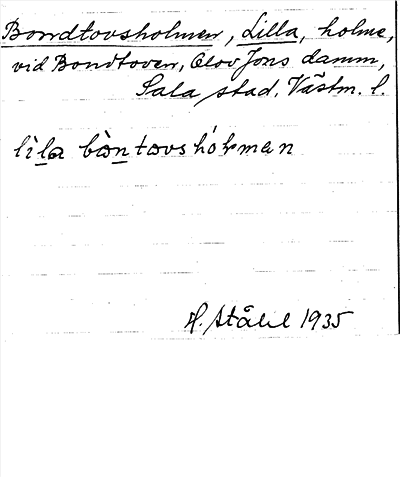 Bondtovsholmen, Lilla, holme,
vid Bondtoven, Olov Jons damm,
Sala stad, Västm. l.
lìla bòntovshólmen
H. Ståhl 1935